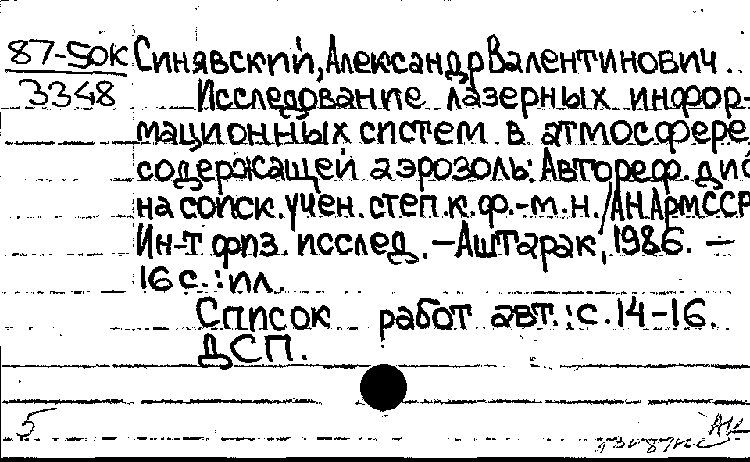 87-50к Синявский, Александр Валентинович.
3348 Исследование лазерных инфор-
мационных систем в атмосфере
содержащей аэрозоль: Автореф. дис
на соиск. учен. степ. к. ф.-м. н. /АН АрмССР
Ин-т физ. исслед. – Аштарак, 1986. –
16 с. : ил.
Список работ авт.: с. 14-16.
ДСП.
5